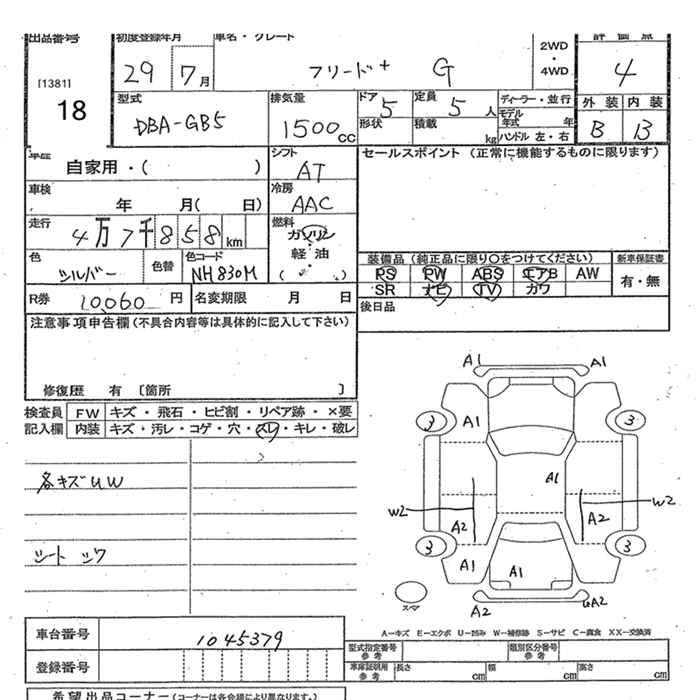 出品番号 初度登録年月 車名・グレード 2WD ・ 4WD 評価点
[1381] 29 7月 フリード+ G 4
18 型式 排気量 ドア 定員 ディーラー・並行 外装 内装
DBA-GB5 1500cc 5 5人 モデル年式 年 B B
形状 積載 kg ハンドル 左・右
車歴 自家用・( ) シフト AT セールスポイント (正常に機能するものに限ります)
車検 年 月( 日) 冷房 AAC
走行 4万7千858km 燃料 ガソリン・軽油 ( )
色 シルバー 色替 色コード NH830M 装備品 (純正品に限り○をつけてください) 新車保証書
PS PW ABS エアB AW 有・無
SR ナビ TV カワ
R券 10,060 円 名変期限 月 日 後日品
注意事項申告欄 (不具合内容等は具体的に記入して下さい)
修復歴 有 [箇所 ]
検査員 FW キズ・飛石・ヒビ割・リペア跡・×要
記入欄 内装 キズ・汚レ・コゲ・穴・スレ・キレ・破レ
各キズUW
シート シワ
A1 A1
3 A1 3
A1
W2 A2 A2 W2
3 A1 3
A1
スペア A2 UA2
A―キズ E―エクボ U―凹み W―補修跡 S―サビ C―腐食 XX―交換済
車台番号 1045379 型式指定番号 参考 類別区分番号 参考
登録番号 車庫証明用 参考 長さ cm 幅 cm 高さ cm
希望出品コーナー (コーナーは各会場により異なります。)